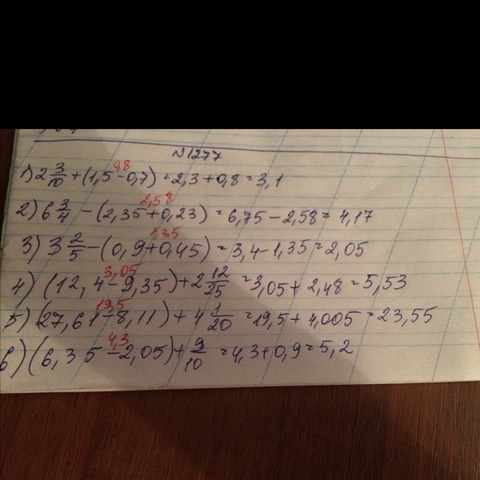 N 1277
0,8
1) 2 3/10 + (1,5 - 0,7) = 2,3 + 0,8 = 3,1
2,58
2) 6 3/4 - (2,35 + 0,23) = 6,75 - 2,58 = 4,17
1,35
3) 3 2/5 - (0,9 + 0,45) = 3,4 - 1,35 = 2,05
3,05
4) (12,4 - 9,35) + 2 12/25 = 3,05 + 2,48 = 5,53
19,5
5) (27,61 - 8,11) + 4 1/20 = 19,5 + 4,005 = 23,55
4,3
6) (6,35 - 2,05) + 9/10 = 4,3 + 0,9 = 5,2